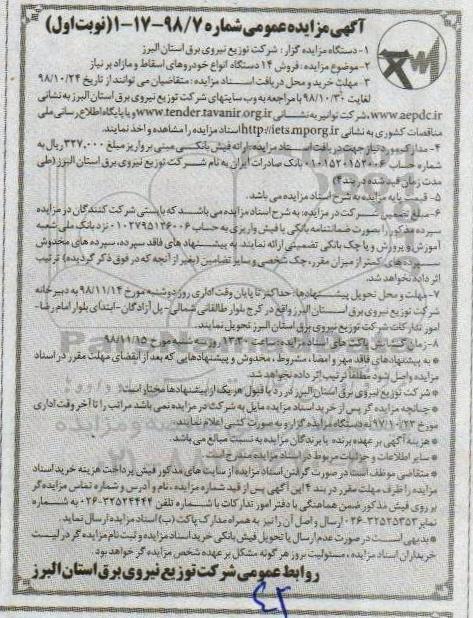 آگهی مزایده عمومی شماره ۹۸/۷-۱۷-۱ (نوبت اول)
۱- دستگاه مزایده گزار : شرکت توزیع نیروی برق استان البرز
۲- موضوع مزایده : فروش ۱۴ دستگاه انواع خودروهای اسقاط و مازاد بر نیاز
۳- مهلت خرید و محل دریافت اسناد مزایده : متقاضیان می توانند از تاریخ ۹۸/۱۰/۲۴
لغایت ۹۸/۱۰/۳۰ با مراجعه به وب سایتهای شرکت توزیع نیروی برق استان البرز به نشانی
www.aepdc.ir، شرکت توانیر به نشانی www.tender.tavanir.org.ir و یا پایگاه اطلاع رسانی ملی
مناقصات کشوری به نشانی http://iets.mporg.ir اسناد مزایده را مشاهده و اخذ نمایند.
۴- مدارک مورد نیاز جهت دریافت اسناد مزایده : ارائه فیش بانکی مبنی بر واریز مبلغ ۳۲۷,۰۰۰ ریال به
شماره حساب بانک صادرات ایران به نام شرکت توزیع نیروی برق استان البرز (طی
مدت زمان قید شده در بند ۳)
۵- قیمت پایه مزایده به شرح اسناد مزایده می باشد.
۶- مبلغ تضمین شرکت در مزایده: به شرح اسناد مزایده می باشد که بایستی شرکت کنندگان در مزایده
سپرده مذکور را بصورت ضمانتنامه بانکی یا فیش واریزی به حساب ۰۱۰۲۷۹۵۱۲۶۰۰۶ نزد بانک ملی شعبه
آموزش و پرورش و یا چک بانکی تضمینی ارائه نمایند. به پیشنهاد های فاقد سپرده، سپرده های مخدوش
سپرده های کمتر از میزان مقرر، چک شخصی و سایر تضامین (بغیر از آنچه که در فوق ذکر گردیده) ترتیب
اثر داده نخواهد شد.
۷- مهلت و محل تحویل پیشنهادها: حداکثر تا پایان وقت اداری روز دوشنبه مورخ ۹۸/۱۱/۱۴ به دبیرخانه
شرکت توزیع نیروی برق استان البرز واقع در کرج بلوار طالقانی شمالی- پل آزادگان- ابتدای بلوار امام رضا-
امور تدارکات شرکت توزیع نیروی برق استان البرز تحویل نمایند.
۸- زمان گشایش پاکت های اسناد مزایده : ساعت ۱۳:۳۰ روز سه شنبه مورخ ۹۸/۱۱/۱۵
* به پیشنهادهای فاقد مهر و امضاء، مشروط، مخدوش و پیشنهادهایی که بعد از انقضای مهلت مقرر در اسناد
مزایده واصل شود مطلقا ترتیب اثر داده نخواهد شد.
* شرکت توزیع نیروی برق استان البرز در رد یا قبول هر یک از پیشنهادها مختار است
* چنانچه مزایده گر پس از خرید اسناد مزایده مایل به شرکت در مزایده نمی باشد مراتب را تا آخر وقت اداری
مورخ به دستگاه مزایده گزار و به صورت کتبی اعلام نمایند.
* هزینه آگهی بر عهده برنده یا برندگان مزایده به نسبت مبالغ می باشد.
* سایر اطلاعات و جزئیات مربوط در اسناد مزایده مندرج است
* متقاضی موظف است در صورت گرفتن اسناد مزایده از سایت های مذکور فیش پرداخت هزینه خرید اسناد
مزایده را ظرف مهلت مقرر در بند ۳ این آگهی پس از قید شماره مزایده ، نام و آدرس و شماره تماس مزایده گر
بر روی فیش مذکور ضمن هماهنگی با دفتر امور تدارکات با شماره تلفن ۳۲۵۲۴۴۴۴-۰۲۶ به شماره
نمابر ۳۲۵۲۵۳۵۳-۰۲۶ ارسال و اصل آن را نیز به همراه مدارک پاکت (ب) اسناد مزایده ارسال نماید.
* بدیهی است در صورت عدم ارسال یا تحویل فیش بانکی خرید اسناد مزایده و ثبت نام مزایده گر در لیست
خریداران اسناد مزایده ، مسئولیت بروز هر گونه مشکل بر عهده شخص مزایده گر خواهد بود.
روابط عمومی شرکت توزیع نیروی برق استان البرز